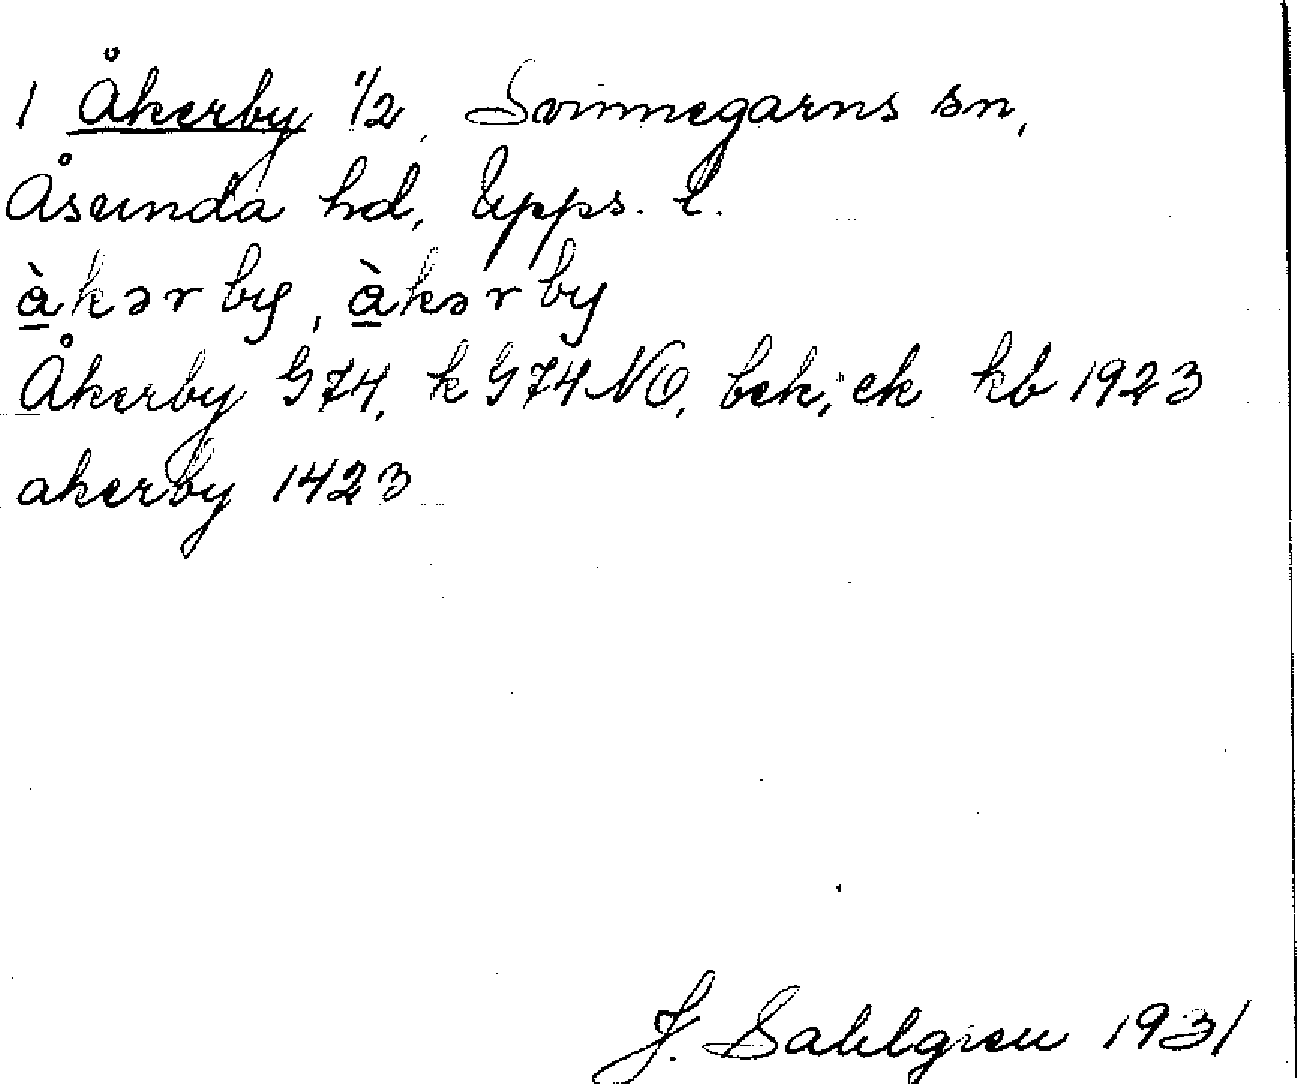 1 Åkerby 1/2, Svinnegarns sn,
Åsunda hd, Upps. l.
àkər by, àkər by
Åkerby G74, k G74 NO, bek, ek kb 1923
akerby 1423
J. Sahlgren 1931